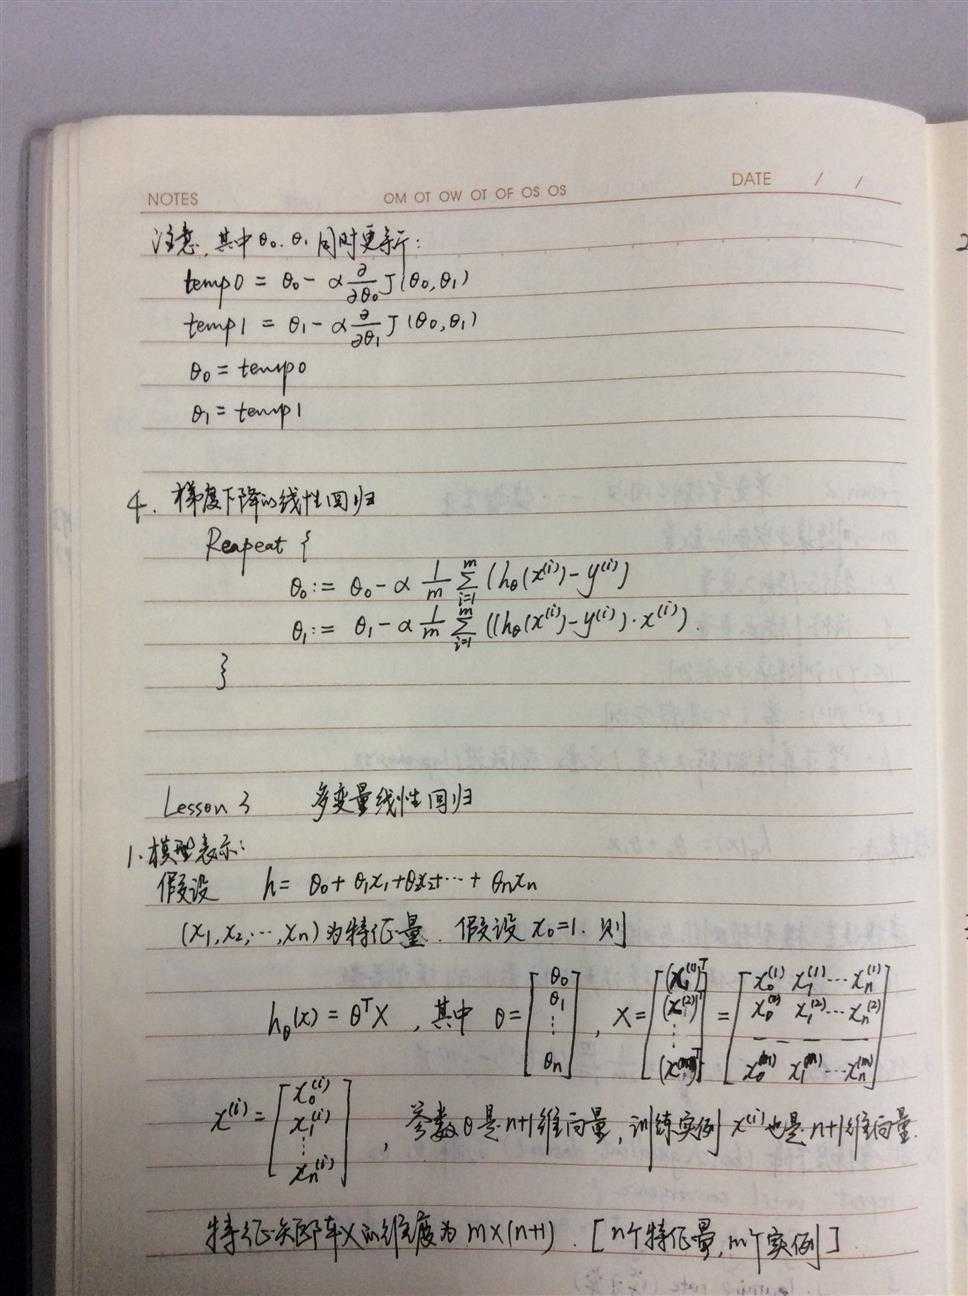 NOTES OM OT OW OT OF OS OS DATE / /
注意,其中θ₀、θ₁同时更新:
temp0 = θ₀ - α ∂/∂θ₀ J(θ₀,θ₁)
temp1 = θ₁ - α ∂/∂θ₁ J(θ₀,θ₁)
θ₀ = temp0
θ₁ = temp1
4. 梯度下降的线性回归
Reapeat {
θ₀ := θ₀ - α 1/m Σᵢ₌₁ᵐ (h_θ(x⁽ⁱ⁾) - y⁽ⁱ⁾)
θ₁ := θ₁ - α 1/m Σᵢ₌₁ᵐ ((h_θ(x⁽ⁱ⁾) - y⁽ⁱ⁾)·x⁽ⁱ⁾).
}
Lesson 3 多变量线性回归
1.模型表示:
假设 h = θ₀ + θ₁x₁ + θ₂x₂ + ⋯ + θₙxₙ
(x₁, x₂, ⋯, xₙ) 为特征量. 假设 x₀=1. 则
h_θ(x) = θᵀX , 其中 θ = [θ₀ θ₁ ⋮ θₙ] , X = [(x⁽¹⁾)ᵀ (x⁽²⁾)ᵀ ⋮ (x⁽ᵐ⁾)ᵀ] = [x₀⁽¹⁾ x₁⁽¹⁾ ⋯ xₙ⁽¹⁾ x₀⁽²⁾ x₁⁽²⁾ ⋯ xₙ⁽²⁾ — — — — x₀⁽ᵐ⁾ x₁⁽ᵐ⁾ ⋯ xₙ⁽ᵐ⁾]
x⁽ⁱ⁾ = [x₀⁽ⁱ⁾ x₁⁽ⁱ⁾ ⋮ xₙ⁽ⁱ⁾] , 参数θ是n+1维向量, 训练实例 x⁽ⁱ⁾也是n+1维向量.
特征矩阵X的维度为 m×(n+1). [n个特征量, m个实例].